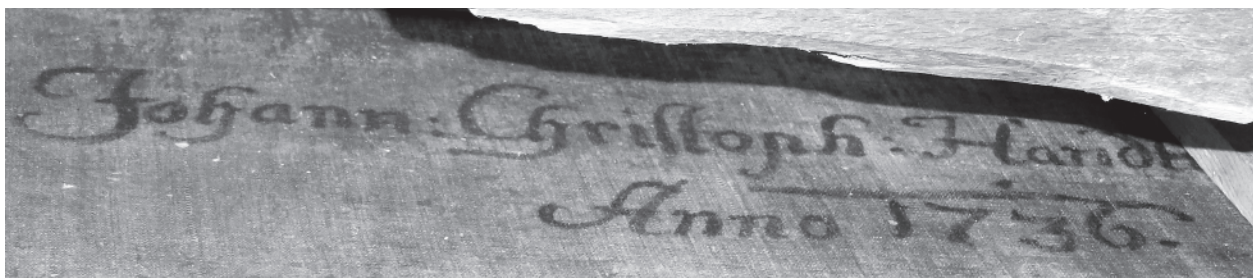 Johann: Christoph: Handk
Anno 1736.